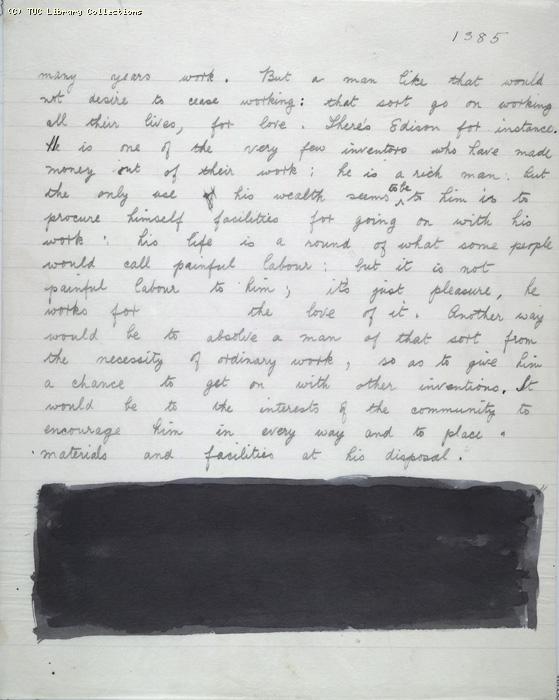 (C) TUC Library Collections
1385
many years work. But a man like that would
not desire to cease working: that sort go on working
all their lives, for love. There's Edison for instance.
He is one of the very few inventors who have made
money out of their work; he is a rich man: but
the only use of his wealth seems to be to him is to
procure himself facilities for going on with his
work: his life is a round of what some people
would call painful labour: but it is not
painful labour to him; it's just pleasure, he
works for the love of it. Another way
would be to absolve a man of that sort from
the necessity of ordinary work, so as to give him
a chance to get on with other inventions. It
would be to the interests of the community to
encourage him in every way and to place
materials and facilities at his disposal.